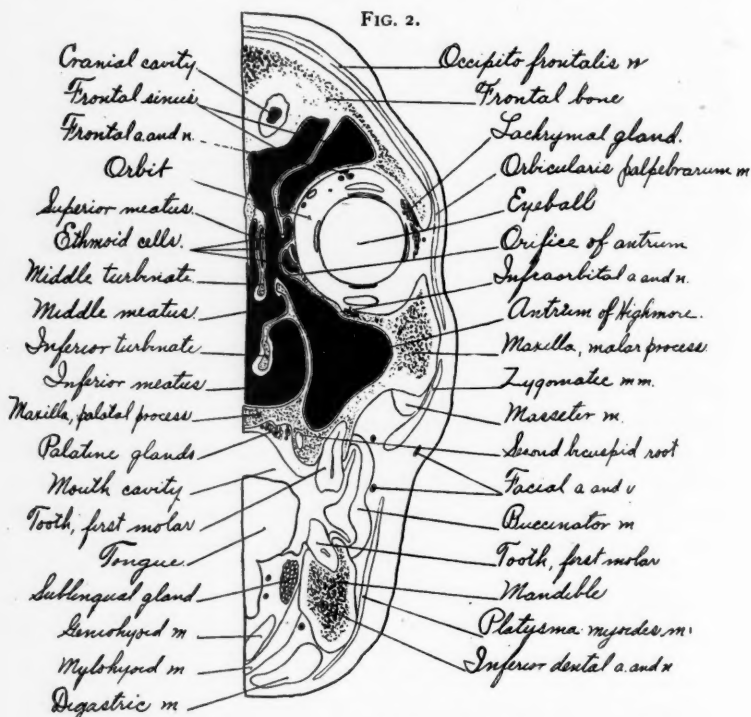 FIG. 2.
Cranial cavity
Frontal sinus
Frontal a. and n.
Orbit
Superior meatus
Ethmoid cells
Middle turbinate
Middle meatus
Inferior turbinate
Inferior meatus
Maxilla, palatal process
Palatine glands
Mouth cavity
Tooth, first molar
Tongue
Sublingual gland
Geniohyoid m
Mylohyoid m
Digastric m
Occipito frontalis m
Frontal bone
Lachrymal gland.
Orbicularis palpebrarum m
Eyeball
Orifice of antrum
Infraorbital a and n.
Antrum of Highmore.
Maxilla, malar process
Zygomatic mm.
Masseter m.
Second bicuspid root
Facial a and v
Buccinator m
Tooth, first molar
Mandible
Platysma myoides m.
Inferior dental a. and n